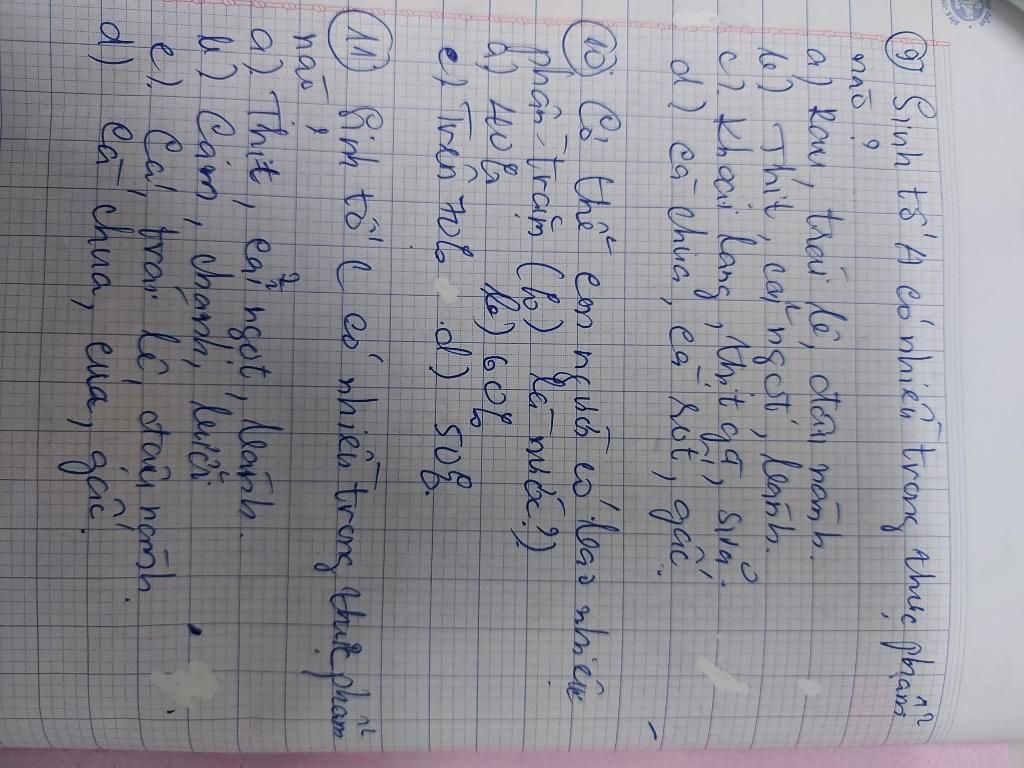 9) Sinh tố A có nhiều trong thực phẩm
nào?
a) Rau, trái lê, đậu nành.
b) Thịt, cải ngọt, lành.
c) Khoai lang, thịt gà, sữa.
d) cà chua, cà rốt, gấc.
10) Cơ thể con người có bao nhiêu
phần trăm (%) là nước?
a) 40% b) 60%
c) Trên 70% d) 50%.
11) Sinh tố C có nhiều trong thực phẩm
nào?
a) Thịt, cải ngọt, lành.
b) Cam, chanh, bưởi
c) Cá, trái lê đậu nành.
d) Cà chua, cua, gấc.